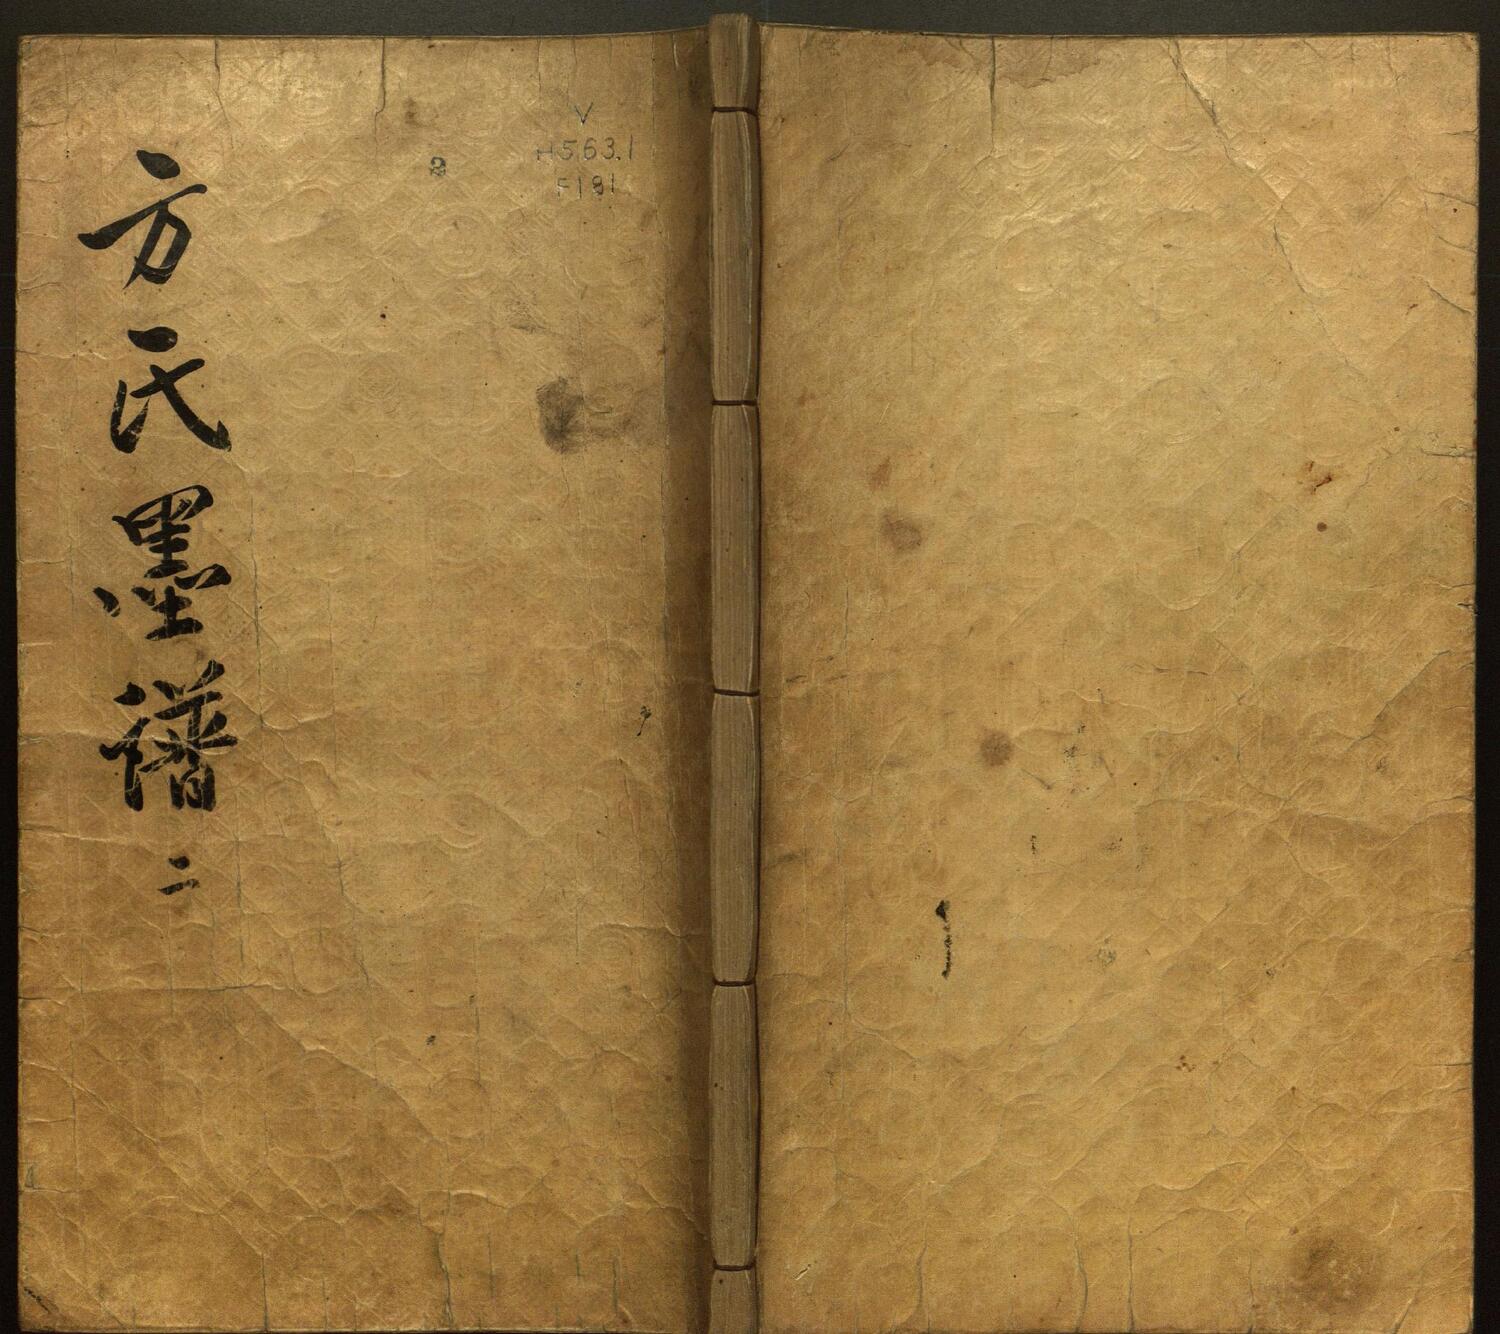 方氏墨譜 二
2
V
H563.1
F181